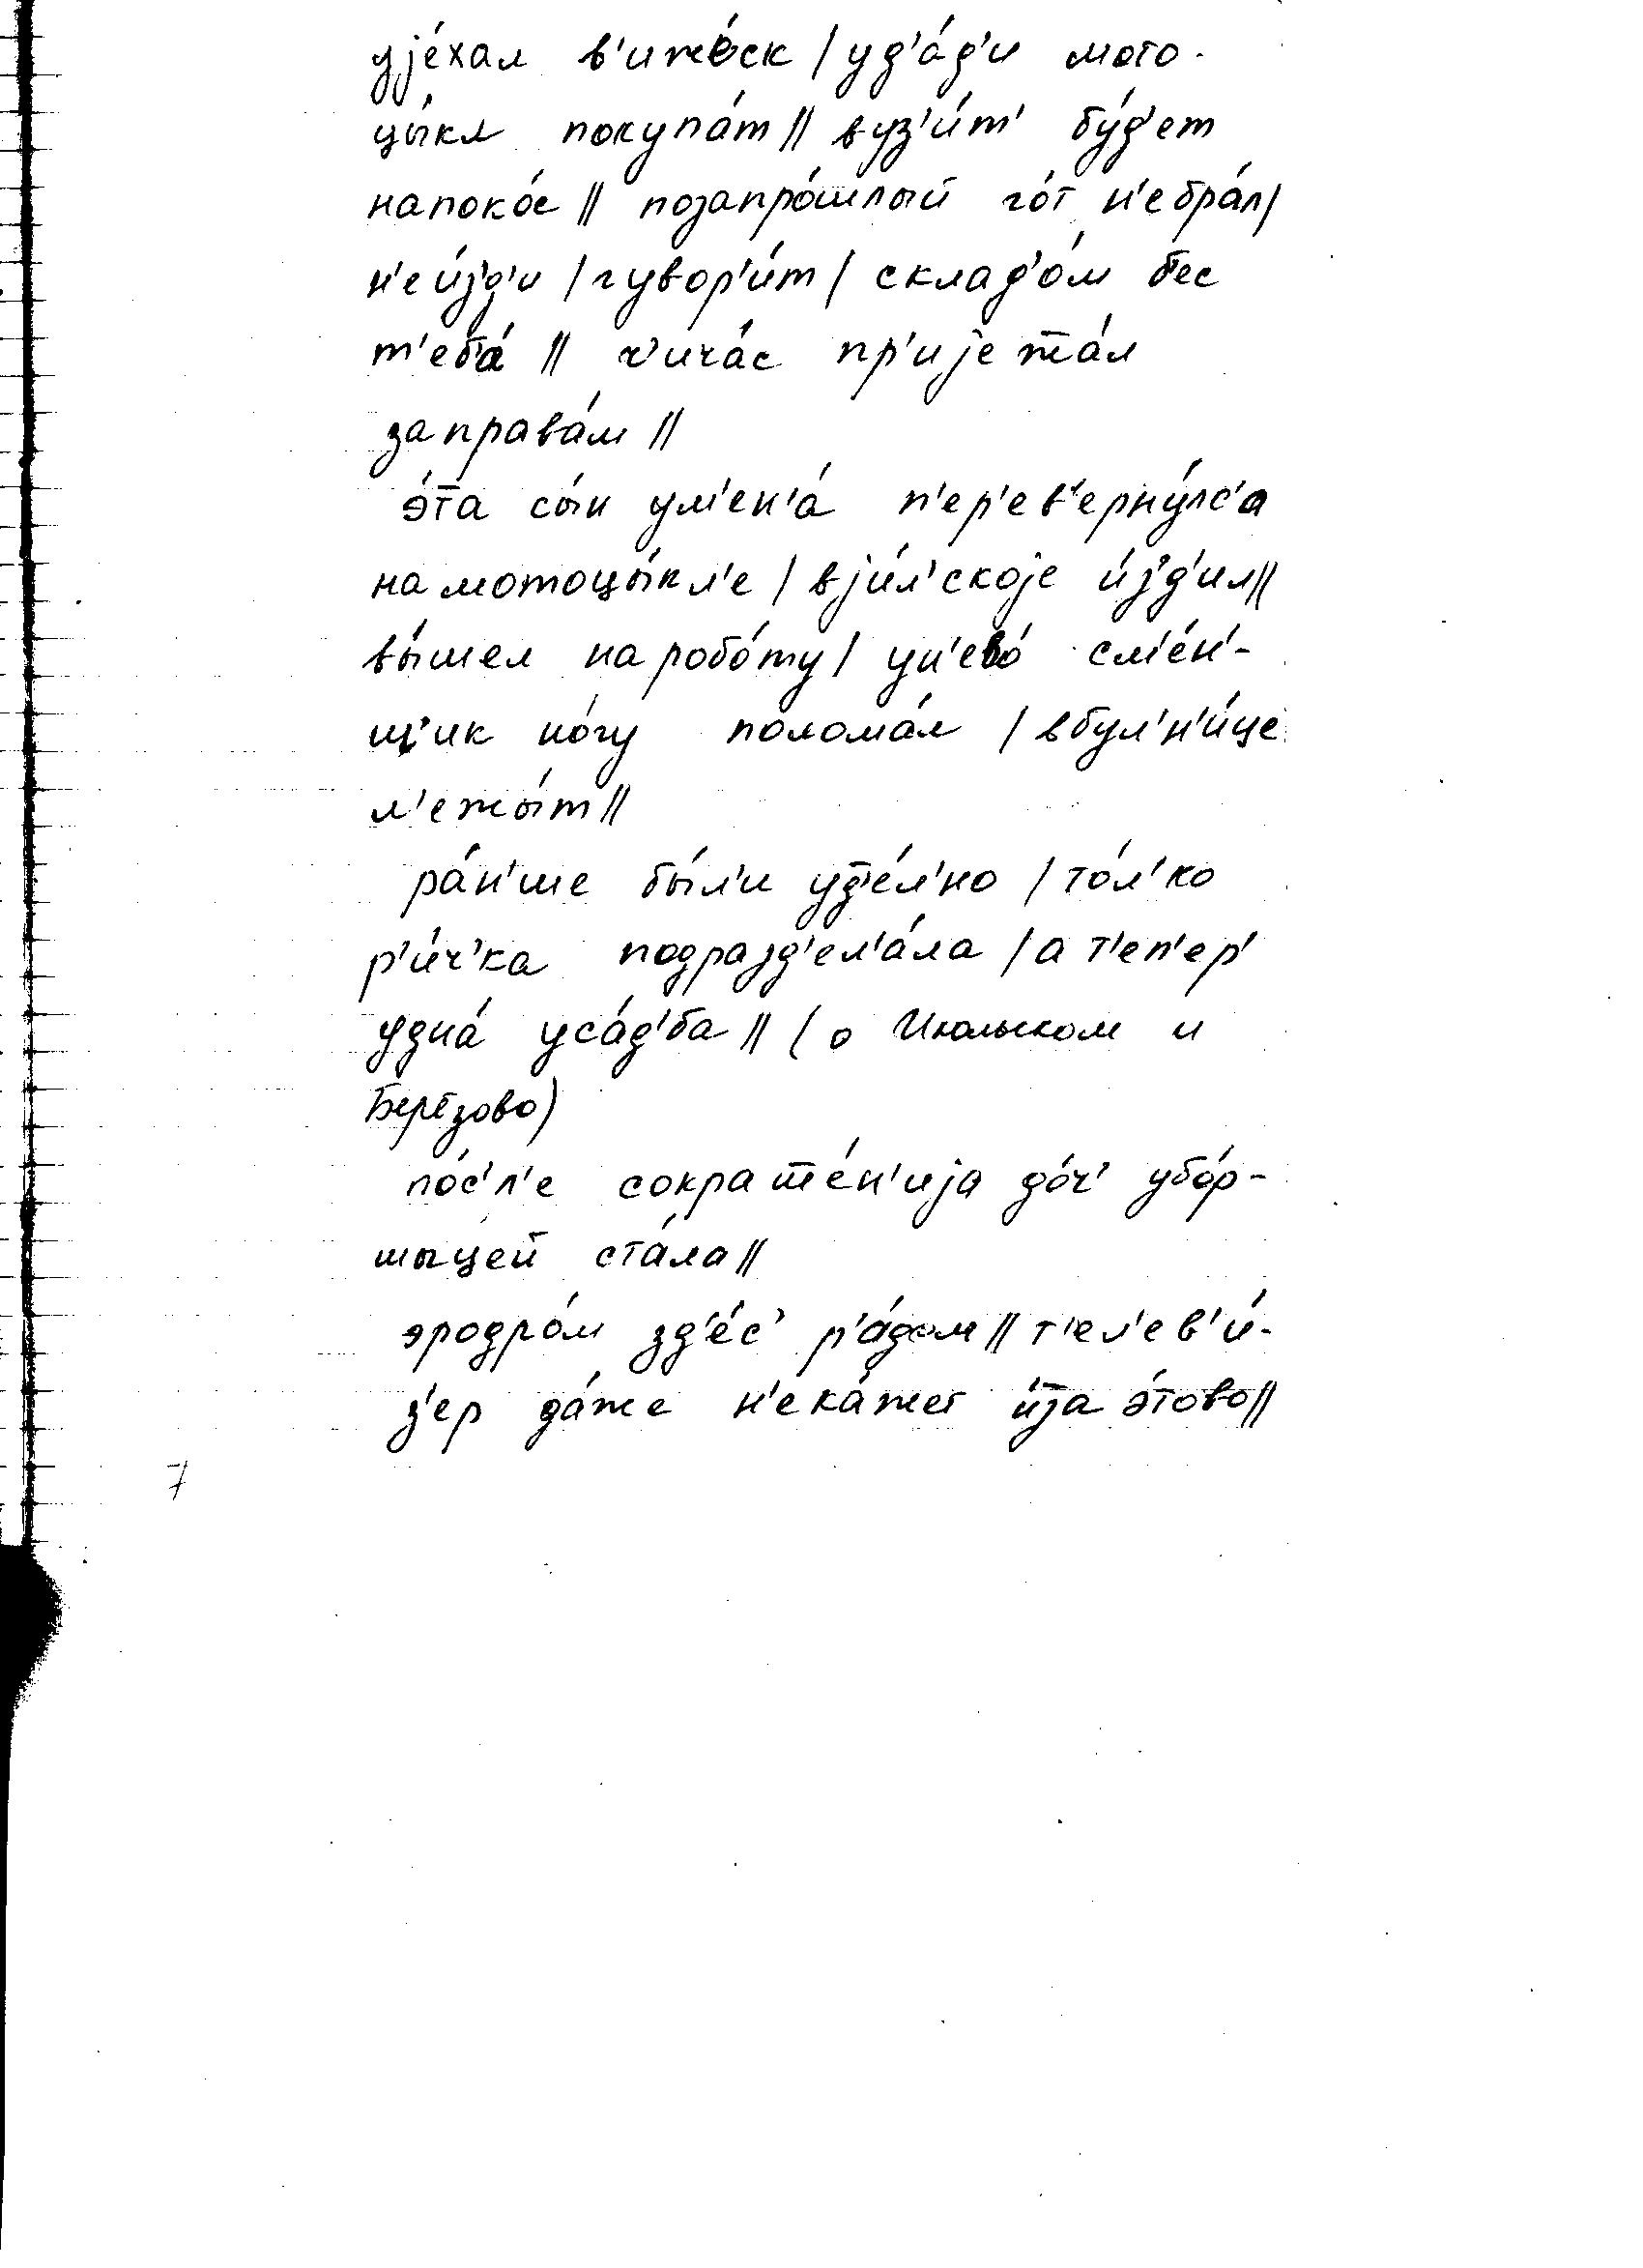 уjе́хал в'иже́вск / уд'а́д'и мото-
цы́кл покупа́т // вуз'и́т' бу́д'ет
напоко́с // позапро́шлый го́т н'ебра́л /
н'еи́зд'и / гувор'и́т / склад'о́м бес
т'еб'а́ // ч'ича́с пр'иjежжа́л
заправа́м //
э́та сы́н ум'ен'а́ п'ер'ев'ерну́лс'а
намотоцы́кл'е / вjи́л'скоjе и́зд'ил //
вы́шел наробо́ту / ун'ево́ см'е́н'-
щ'ик но́гу полома́л / вбул'н'и́це
л'ежы́т //
ра́н'ше бы́л'и уд'е́л'но / то́л'ко
р'и́ч'ка подразд'ел'а́ла / а т'еп'ер'
удна́ уса́д'ба // (о Июльском и
Берёзово)
по́с'л'е сокраше́н'иjа до́ч' убо́р-
шыцей ста́ла //
эродро́м зд'е́с' р'а́дом // т'ел'ев'и́-
з'ер да́же н'ека́жет и́за э́тово //
7